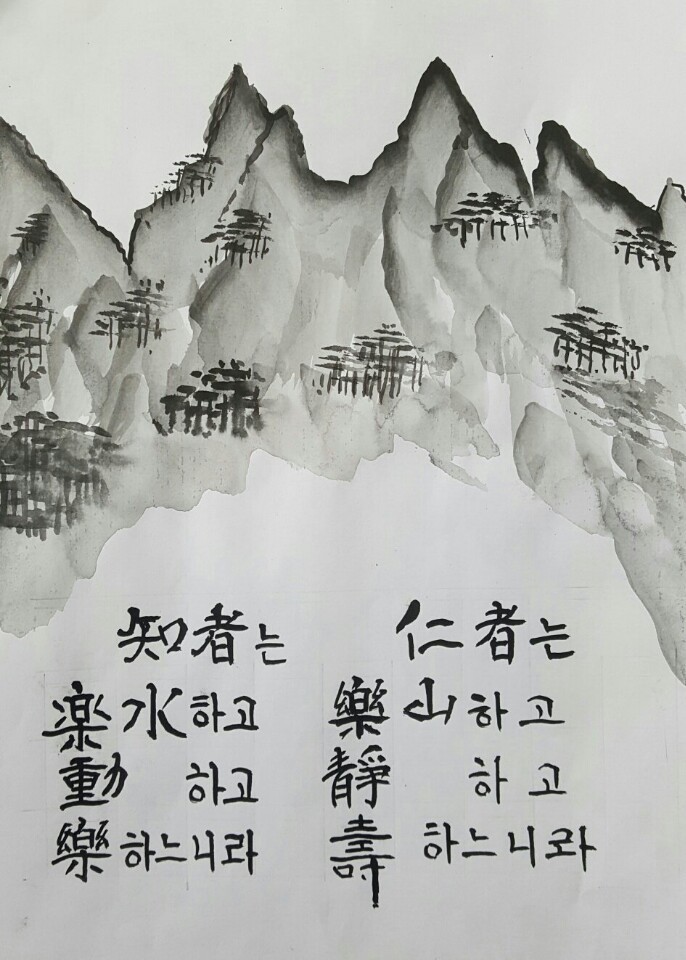 知者는
楽水하고
動 하고
樂하느니라
仁者는
樂山하고
靜 하고
壽 하느니라